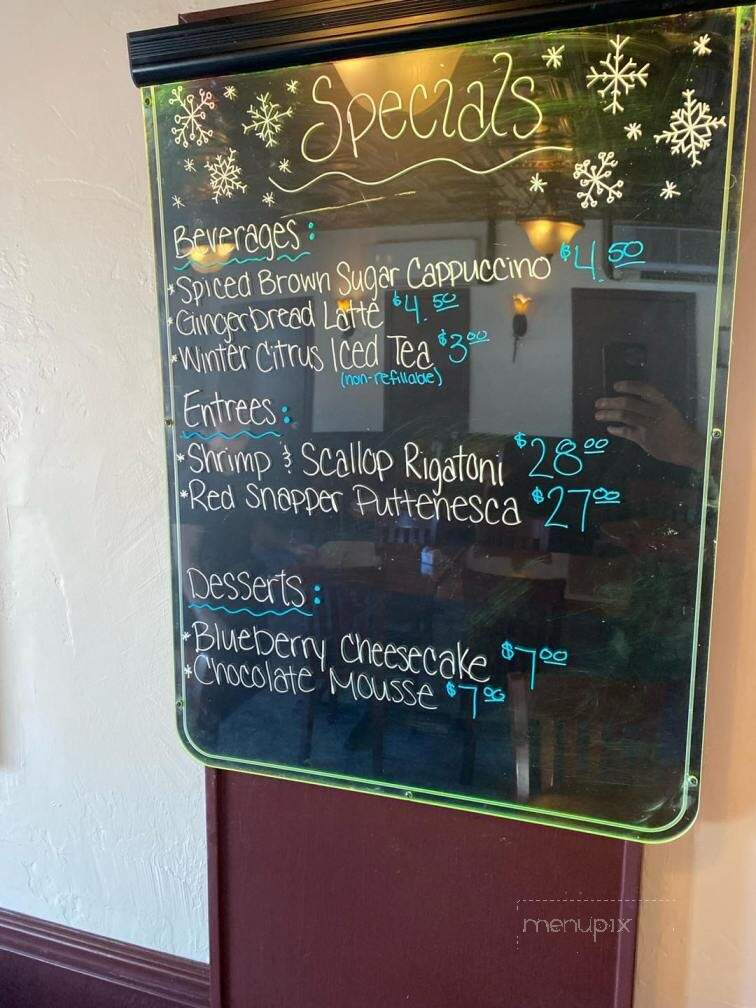 Specials
Beverages:
*Spiced Brown Sugar Cappuccino $4.50
*Gingerbread Latte $4.50
*Winter Citrus Iced Tea $3.00
(non-refillable)
Entrees:
*Shrimp & Scallop Rigatoni $28.00
*Red Snapper Puttenesca $27.00
Desserts:
*Blueberry Cheesecake $7.00
*Chocolate Mousse $7.00
menupix